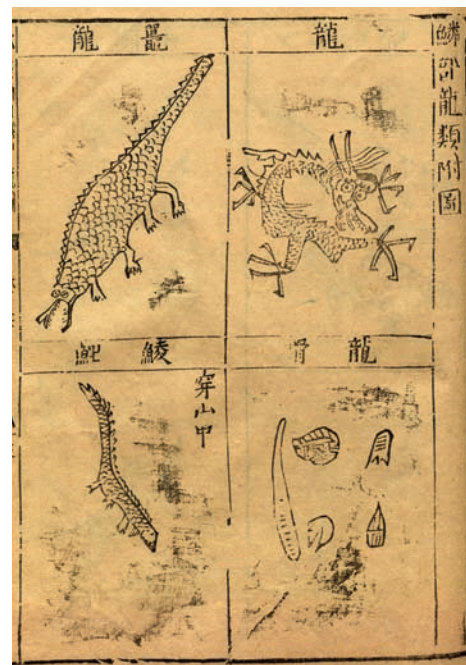 鱗部龍類附圖
龍
鼉龍
龍骨
鯪鯉
穿山甲